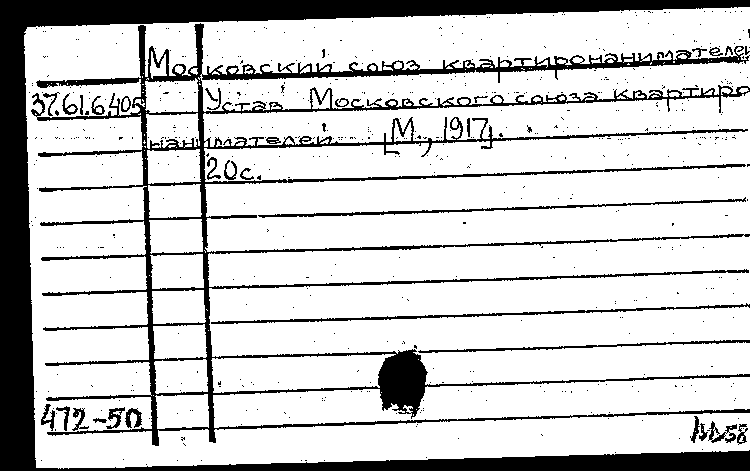 Московский союз квартиронанимателей
37.61.6.405. Устав Московского союза квартиро
нанимателей. [М., 1917].
20с.
472-50